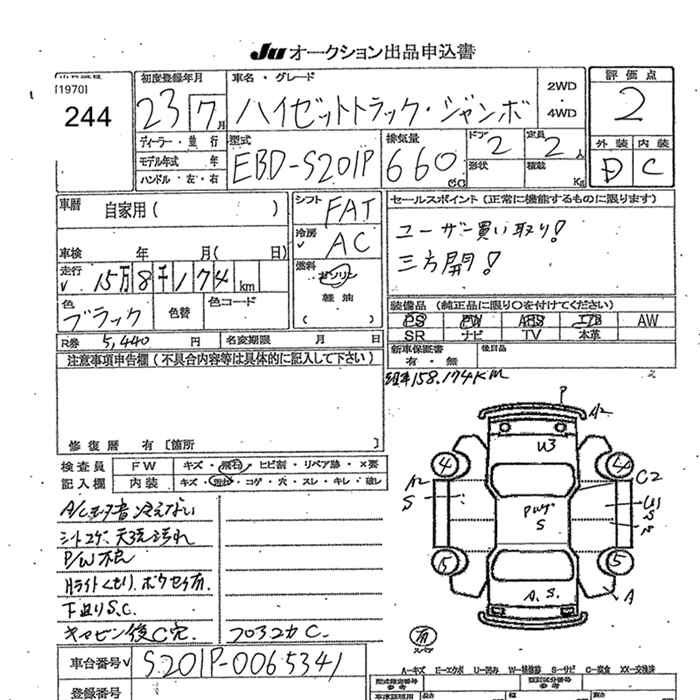 JU オークション出品申込書
[1970]
244
初度登録年月
23 7月
車名・グレード
ハイゼットトラック・ジャンボ
2WD
・
4WD
評価点
2
外装 内装
D C
ディーラー・並行
モデル年式 年
ハンドル・左・右
型式
EBD-S201P
排気量
660 CC
ドア 2
形状
定員 2人
積載 Kg
車暦
自家用( )
車検 年 月( 日)
走行 15万8千174 km
色
ブラック
色替
色コード
シフト
FAT
冷房
AC
燃料
ガソリン
軽油
( )
セールスポイント(正常に機能するものに限ります)
ユーザー買い取り!
三方開!
装備品(純正品に限り〇を付けてください)
PS PW ABS エアB AW
SR ナビ TV 本革
R券 5,440 円 名変期限 月 日
新車保証書
有・無
後日品
注意事項申告欄(不具合内容等は具体的に記入して下さい)
158.174KM
修復暦 有〔箇所 〕
検査員
記入欄
FW キズ・飛石・ヒビ割・リペア跡・×要
内装 キズ・汚れ・コゲ・穴・スレ・キレ・破レ
A/Cモータ音 冷えない
シートコゲ、天張汚れ
P/W不良
Hライトくもり、ボウセイ有
下廻りS.C.
キャビン後C穴
コロコカC.
P
A2
U3
4
4
A2
S
C2
PWT
S
U1
S
5
5
A.S.
A
有
スペア
車台番号 S201P-0065341
登録番号
A-キズ E-エクボ U-凹み W-補修跡 S-サビ C-腐食 XX-交換済
型式指定番号
参考
類別区分番号
参考
長さ